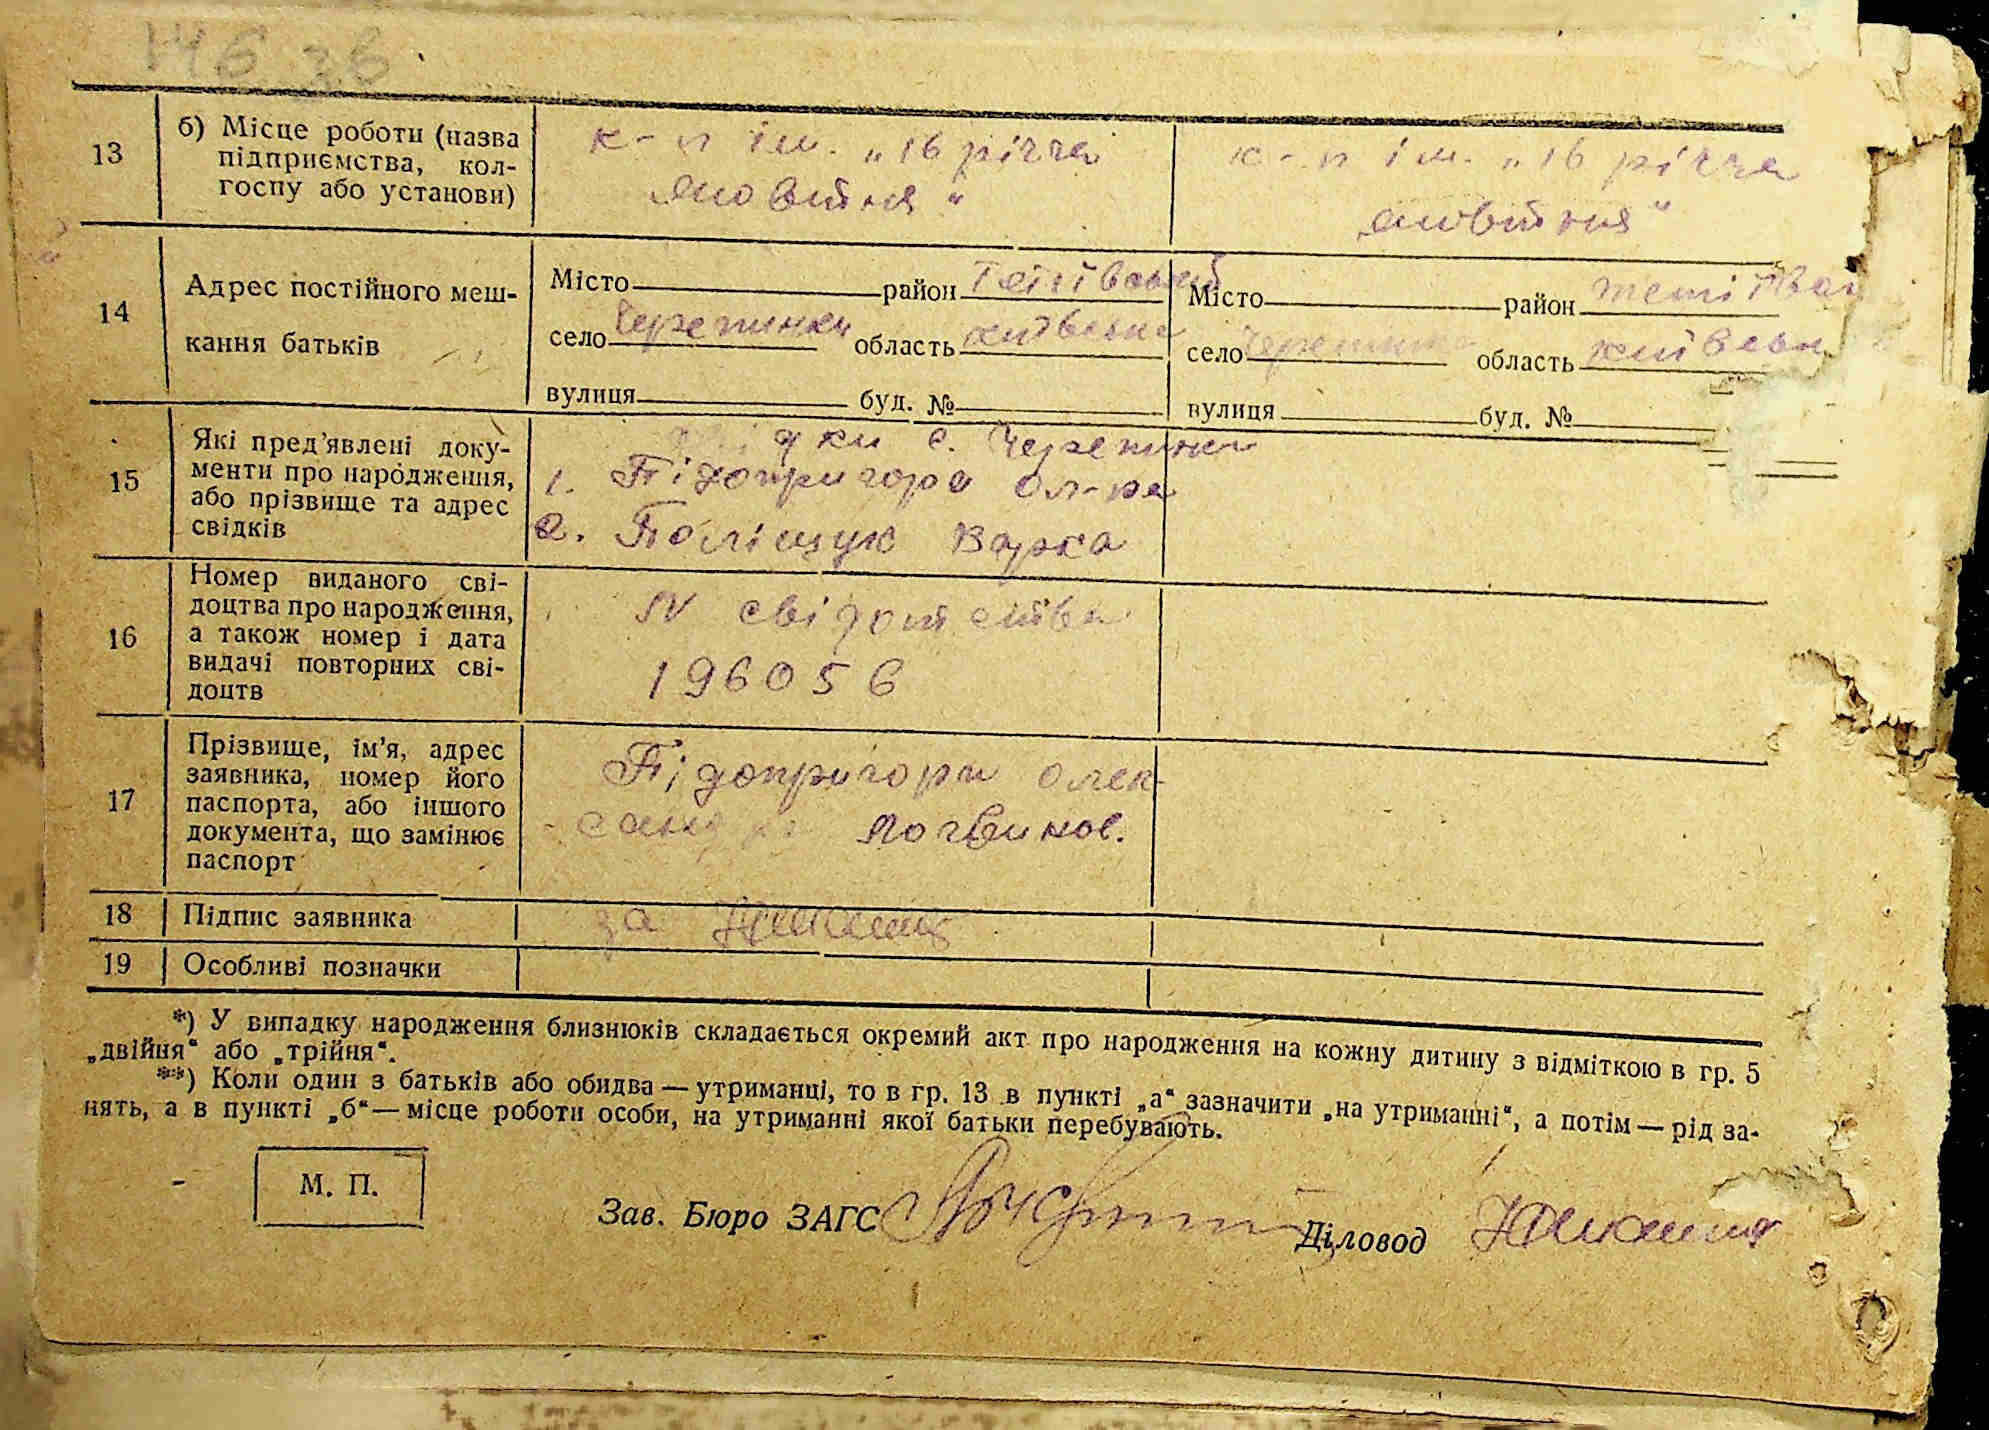 146 зв
13 б) Місце роботи (назва підприємства, колгоспу або установи)
к-п ім. „16 річчя
жовтня“
к-п ім. „16 річчя
жовтня“
14 Адрес постійного мешкання батьків
Місто район Тетіївський
село Черепинки область київська
вулиця буд. №
Місто район тетіївськ
село Черепинки область київськ
вулиця буд. №
15 Які пред’явлені доку-
менти про народження,
або прізвище та адрес
свідків
свідки с. Черепинки
1. Підопригора Ол-ра
2. Поліщук Варка
16 Номер виданого сві-
доцтва про народження,
а також номер і дата
видачі повторних сві-
доцтв
N свідотства
196056
17 Прізвище, ім’я, адрес
заявника, номер його
паспорта, або іншого
документа, що замінює
паспорт
Підопригори олек-
-санд Логвинов.
18 Підпис заявника
за
19 Особливі позначки
*) У випадку народження близнюків складається окремий акт про народження на кожну дитину з відміткою в гр. 5
„двійня“ або „трійня“.
**) Коли один з батьків або обидва — утриманці, то в гр. 13 в пункті „а“ зазначити „на утриманні“, а потім — рід за-
нять, а в пункті „б“ — місце роботи особи, на утриманні якої батьки перебувають.
М. П.
Зав. Бюро ЗАГС Діловод